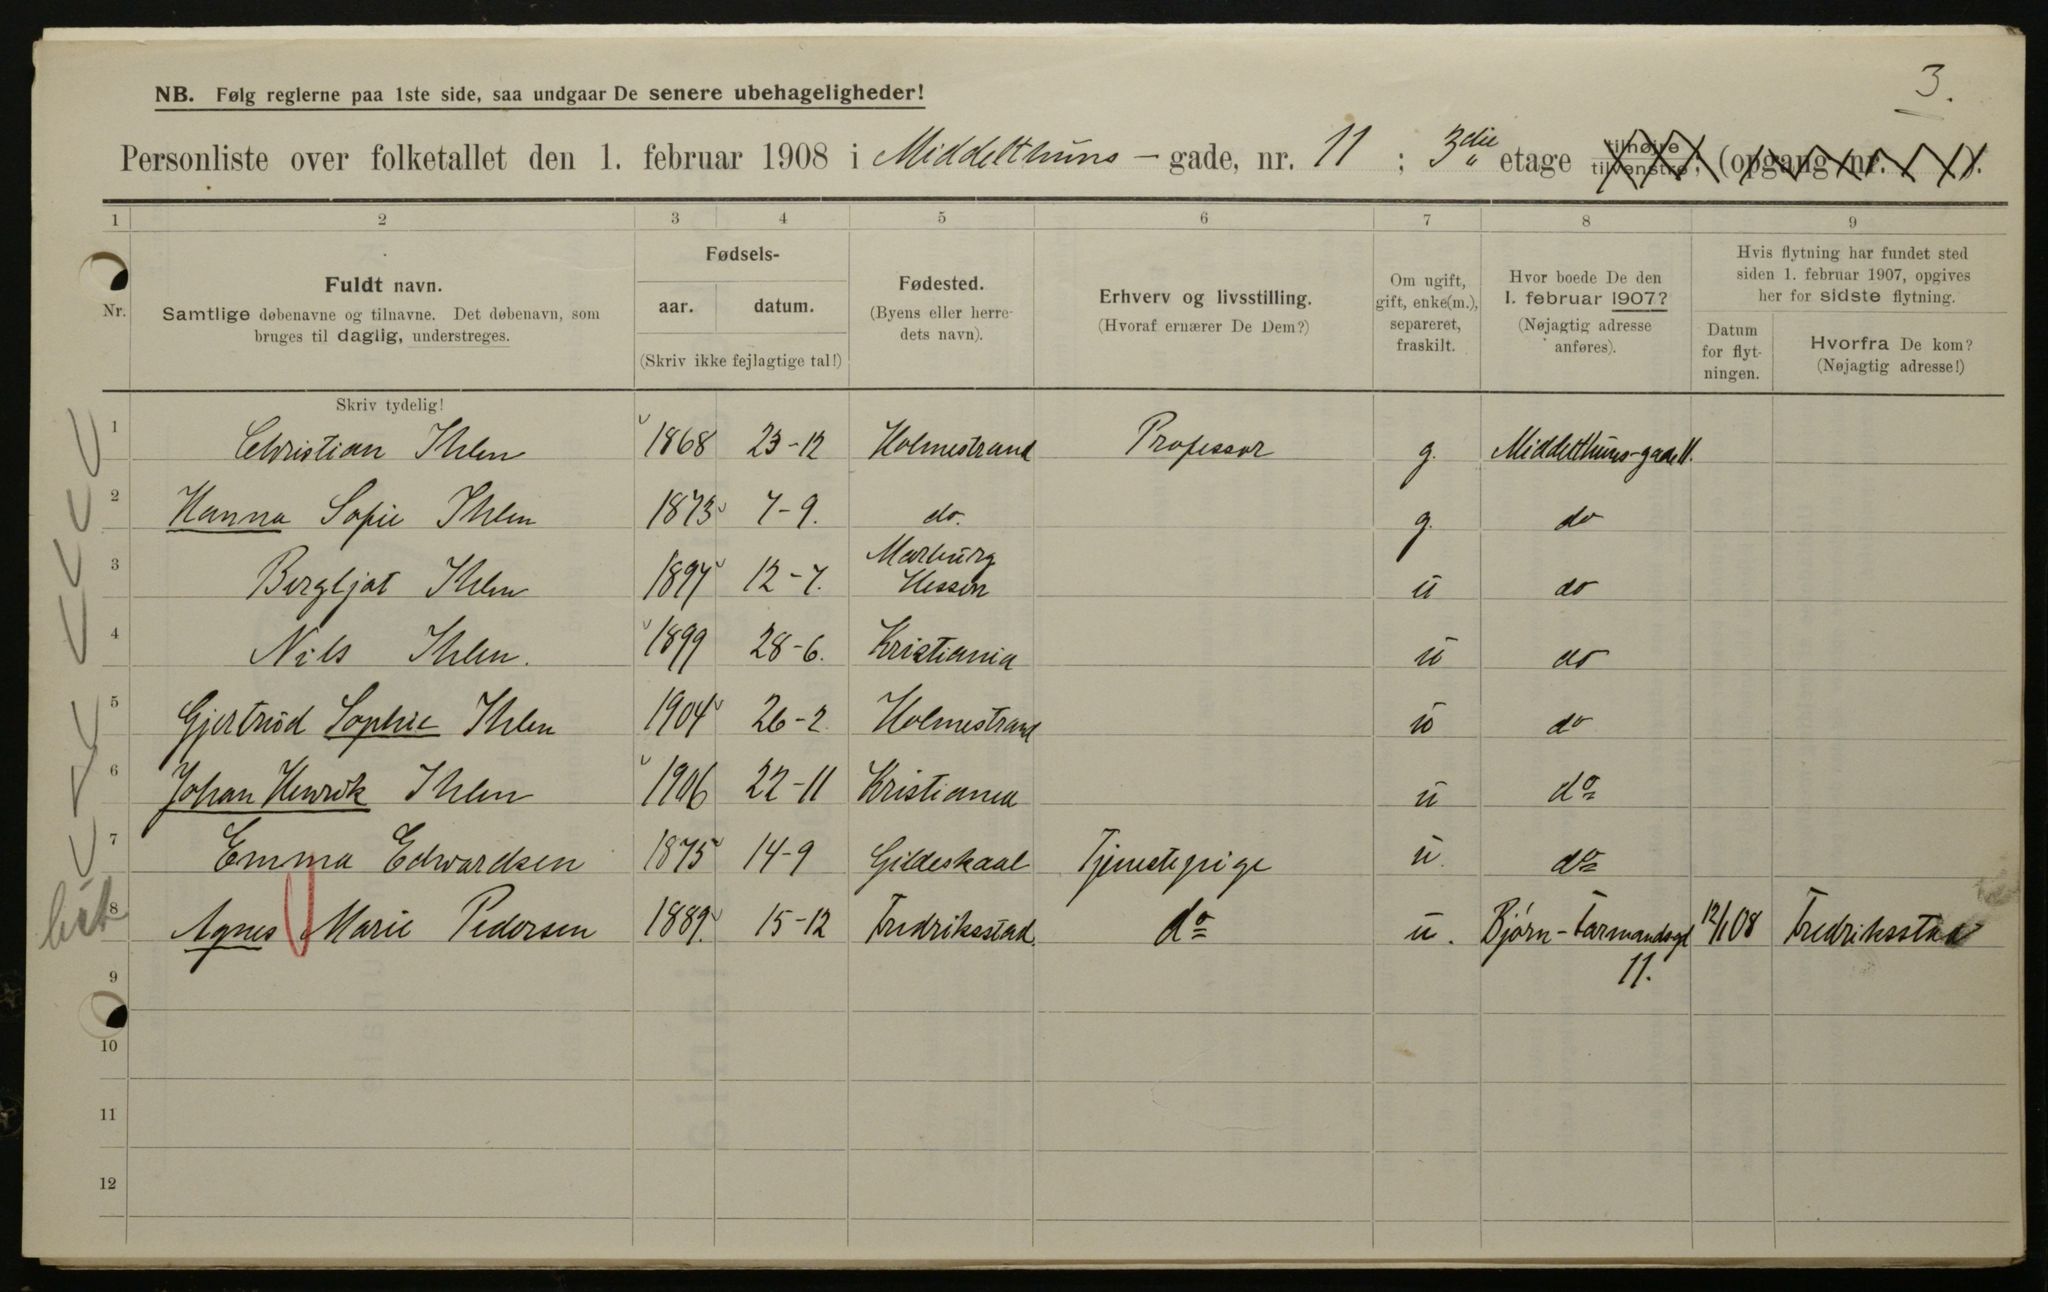 3.
NB. Følg reglerne paa 1ste side, saa undgaar De senere ubehageligheder!
Personliste over folketallet den 1. februar 1908 i Middelthuns - gade, nr. 11 ; 3die etage tilhøire tilvenstre; (opgang nr. ).
1 2 3 4 5 6 7 8 9
Nr. Fuldt navn. Samtlige døbenavne og tilnavne. Det døbenavn, som bruges til daglig, understreges.
Fødsels-
aar. datum.
(Skriv ikke fejlagtige tal!)
Fødested. (Byens eller herredets navn).
Erhverv og livsstilling. (Hvoraf ernærer De Dem?)
Om ugift, gift, enke(m.), separeret, fraskilt.
Hvor boede De den 1. februar 1907? (Nøjagtig adresse anføres).
Hvis flytning har fundet sted siden 1. februar 1907, opgives her for sidste flytning.
Datum for flytningen.
Hvorfra De kom? (Nøjagtig adresse!)
Skriv tydelig!
1 Christian Ihlen 1868 23-12 Holmestrand Professor g. Middelthuns-gade 11.
2 Hanna Sofie Ihlen 1873 7-9. do. g. do
3 Bergljot Ihlen 1897 12-7. Marburg Hessen u do
4 Nils Ihlen. 1899 28-6. Kristiania u do
5 Gjertrud Sophie Ihlen 1904 26-2 Holmestrand u do
6 Johan Henrik Ihlen 1906 22-11 Kristiania u do
7 Emma Edwardsen 1875 14-9 Gildeskaal Tjenestepige u. do
8 Agnes Marie Pedersen 1889. 15-12 Fredriksstad. do u. Bjørn-Farmandsgd 11. 12/1 08 Fredriksstad
9
10
11
12